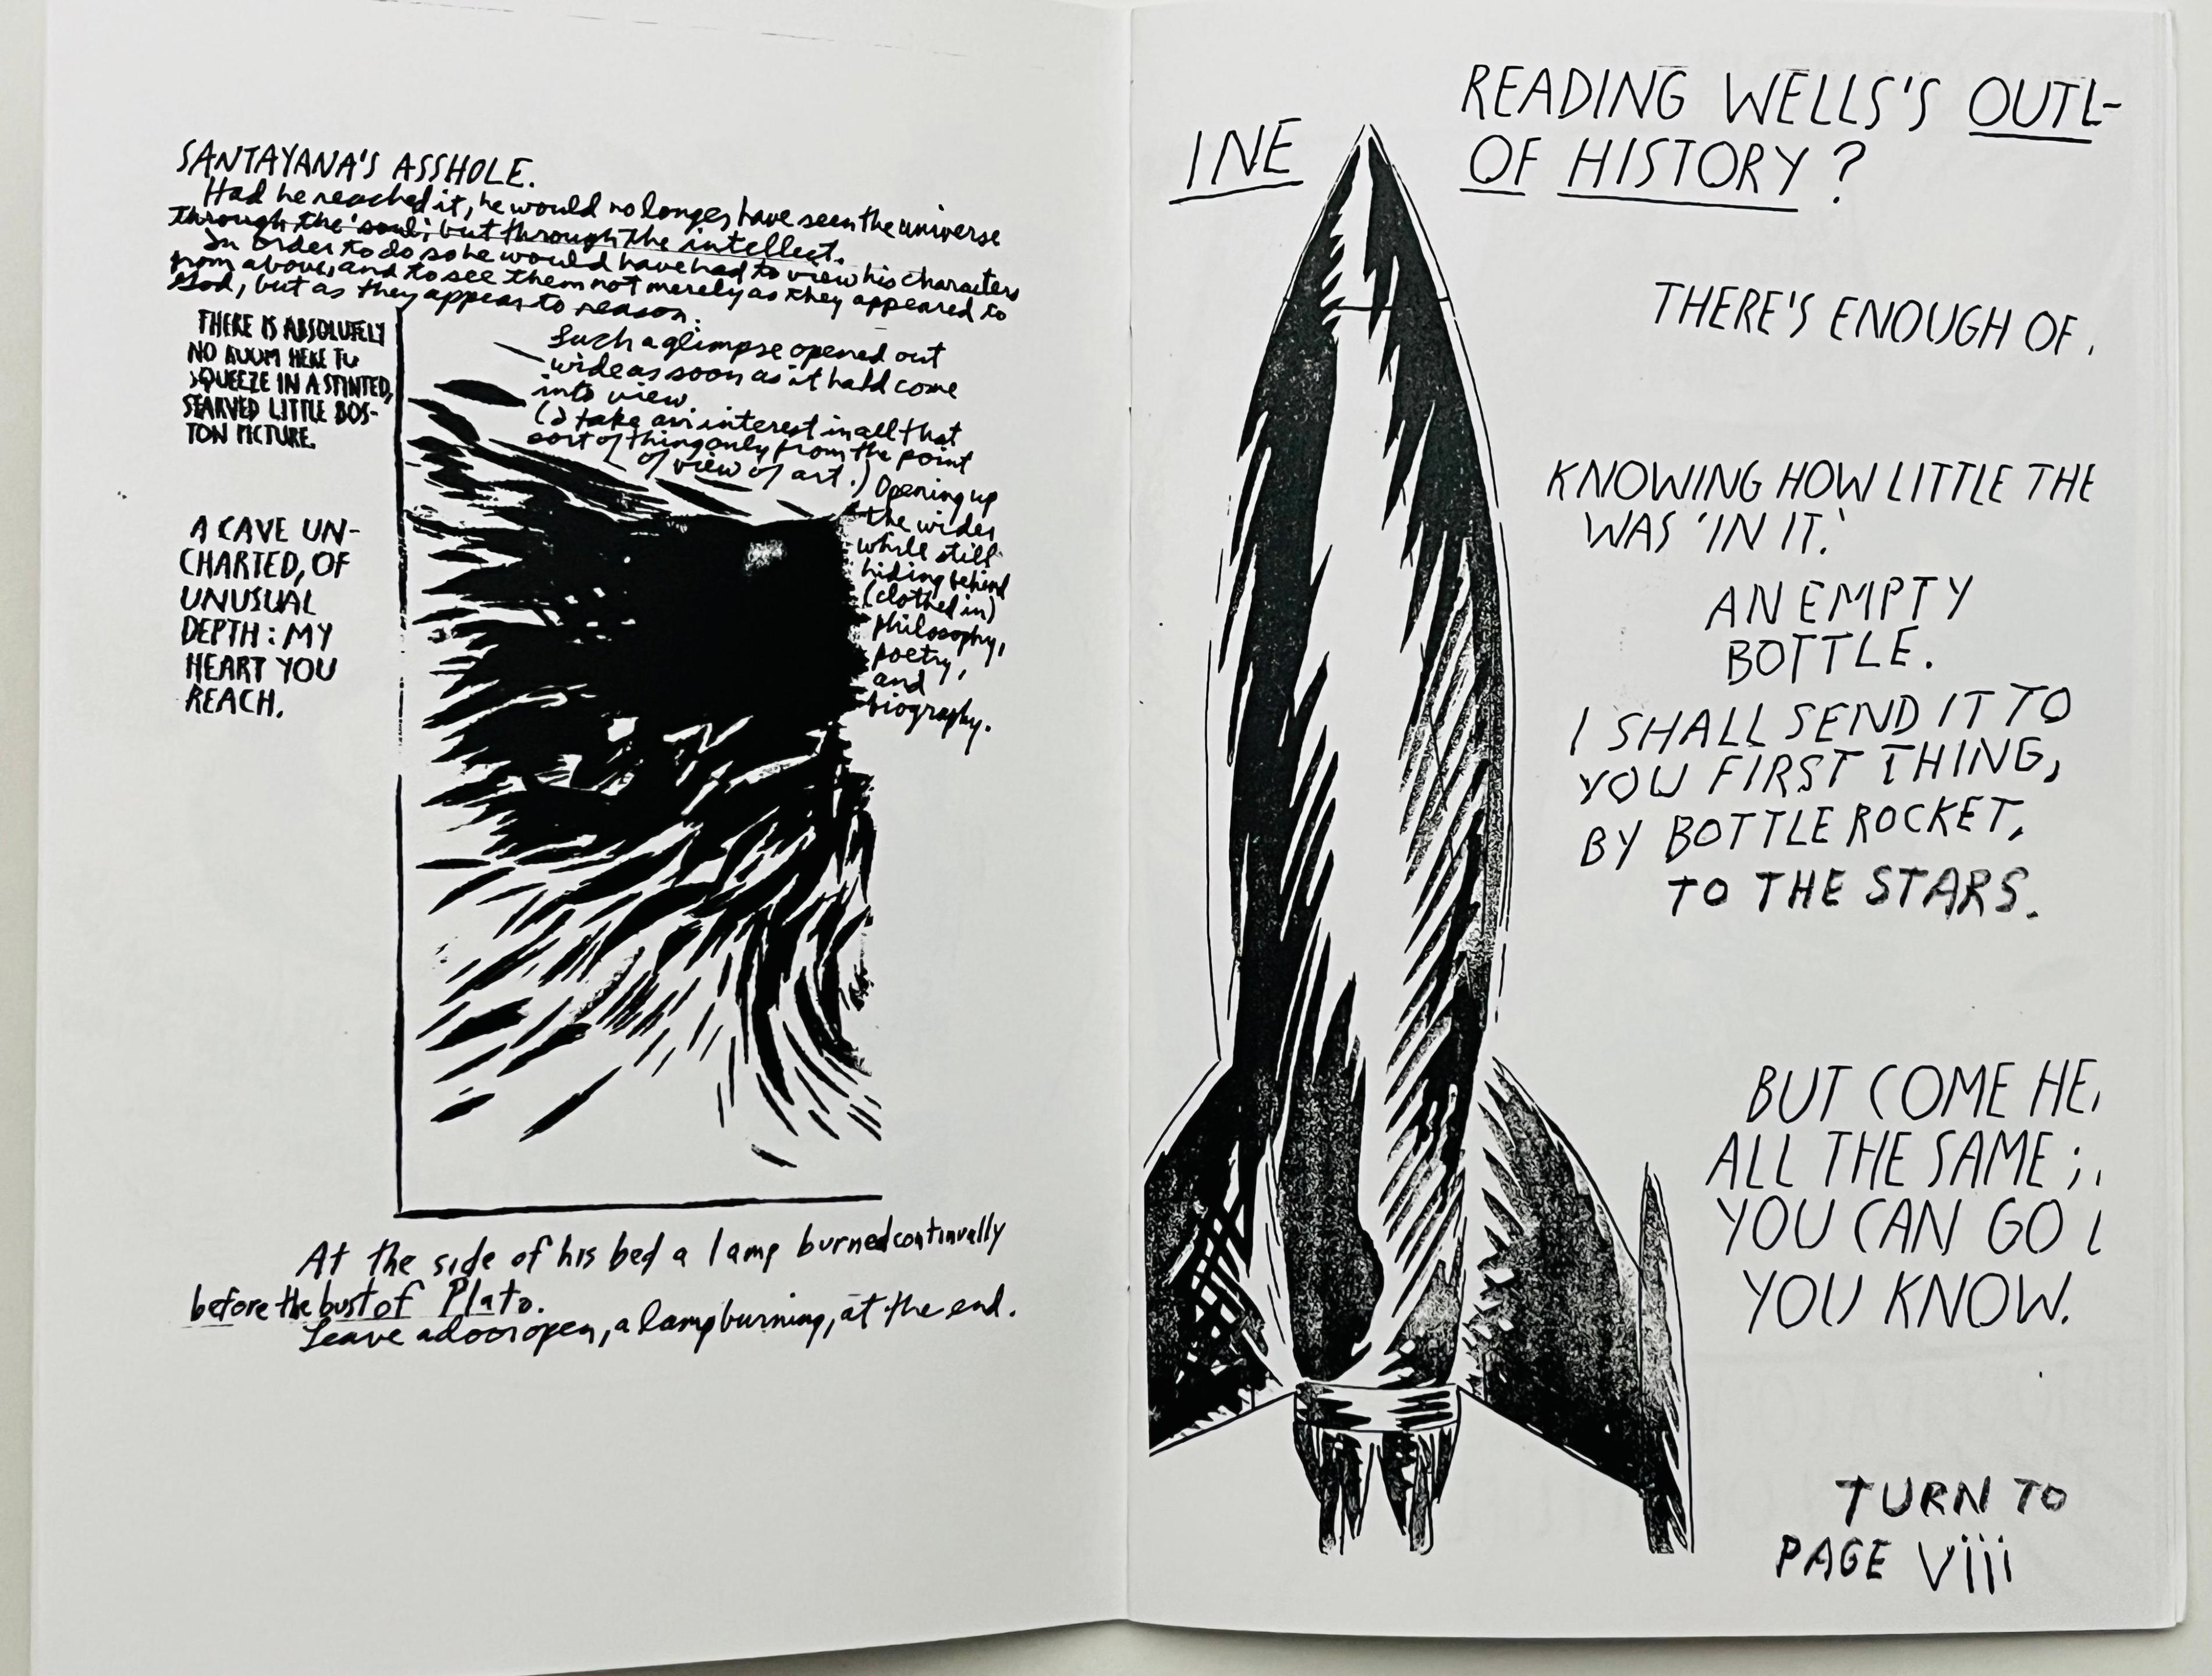 SANTAYANA'S ASSHOLE.
Had he reached it, he would no longer have seen the universe
through the 'soul', but through the intellect.
In order to do so he would have had to view his characters
from above, and to see them not merely as they appeared to
God, but as they appear to reason.
THERE IS ABSOLUTELY
NO ROOM HERE TO
SQUEEZE IN A STINTED,
STARVED LITTLE BOS-
TON PICTURE.
Such a glimpse opened out
wide as soon as it hald come
into view
(I take an interest in all that
sort of thing only from the point
of view of art.)
Opening up
the wider
while still
hiding behind
(clothed in)
philosophy,
poetry,
and
biography.
A CAVE UN-
CHARTED, OF
UNUSUAL
DEPTH: MY
HEART YOU
REACH.
At the side of his bed a lamp burned continually
before the bust of Plato.
Leave a door open, a lamp burning, at the end.
READING WELLS'S OUTL-
INE OF HISTORY?
THERE'S ENOUGH OF
KNOWING HOW LITTLE THE
WAS 'IN IT.'
AN EMPTY
BOTTLE.
I SHALL SEND IT TO
YOU FIRST THING,
BY BOTTLE ROCKET,
TO THE STARS.
BUT COME HE
ALL THE SAME;
YOU CAN GO
YOU KNOW.
TURN TO
PAGE viii